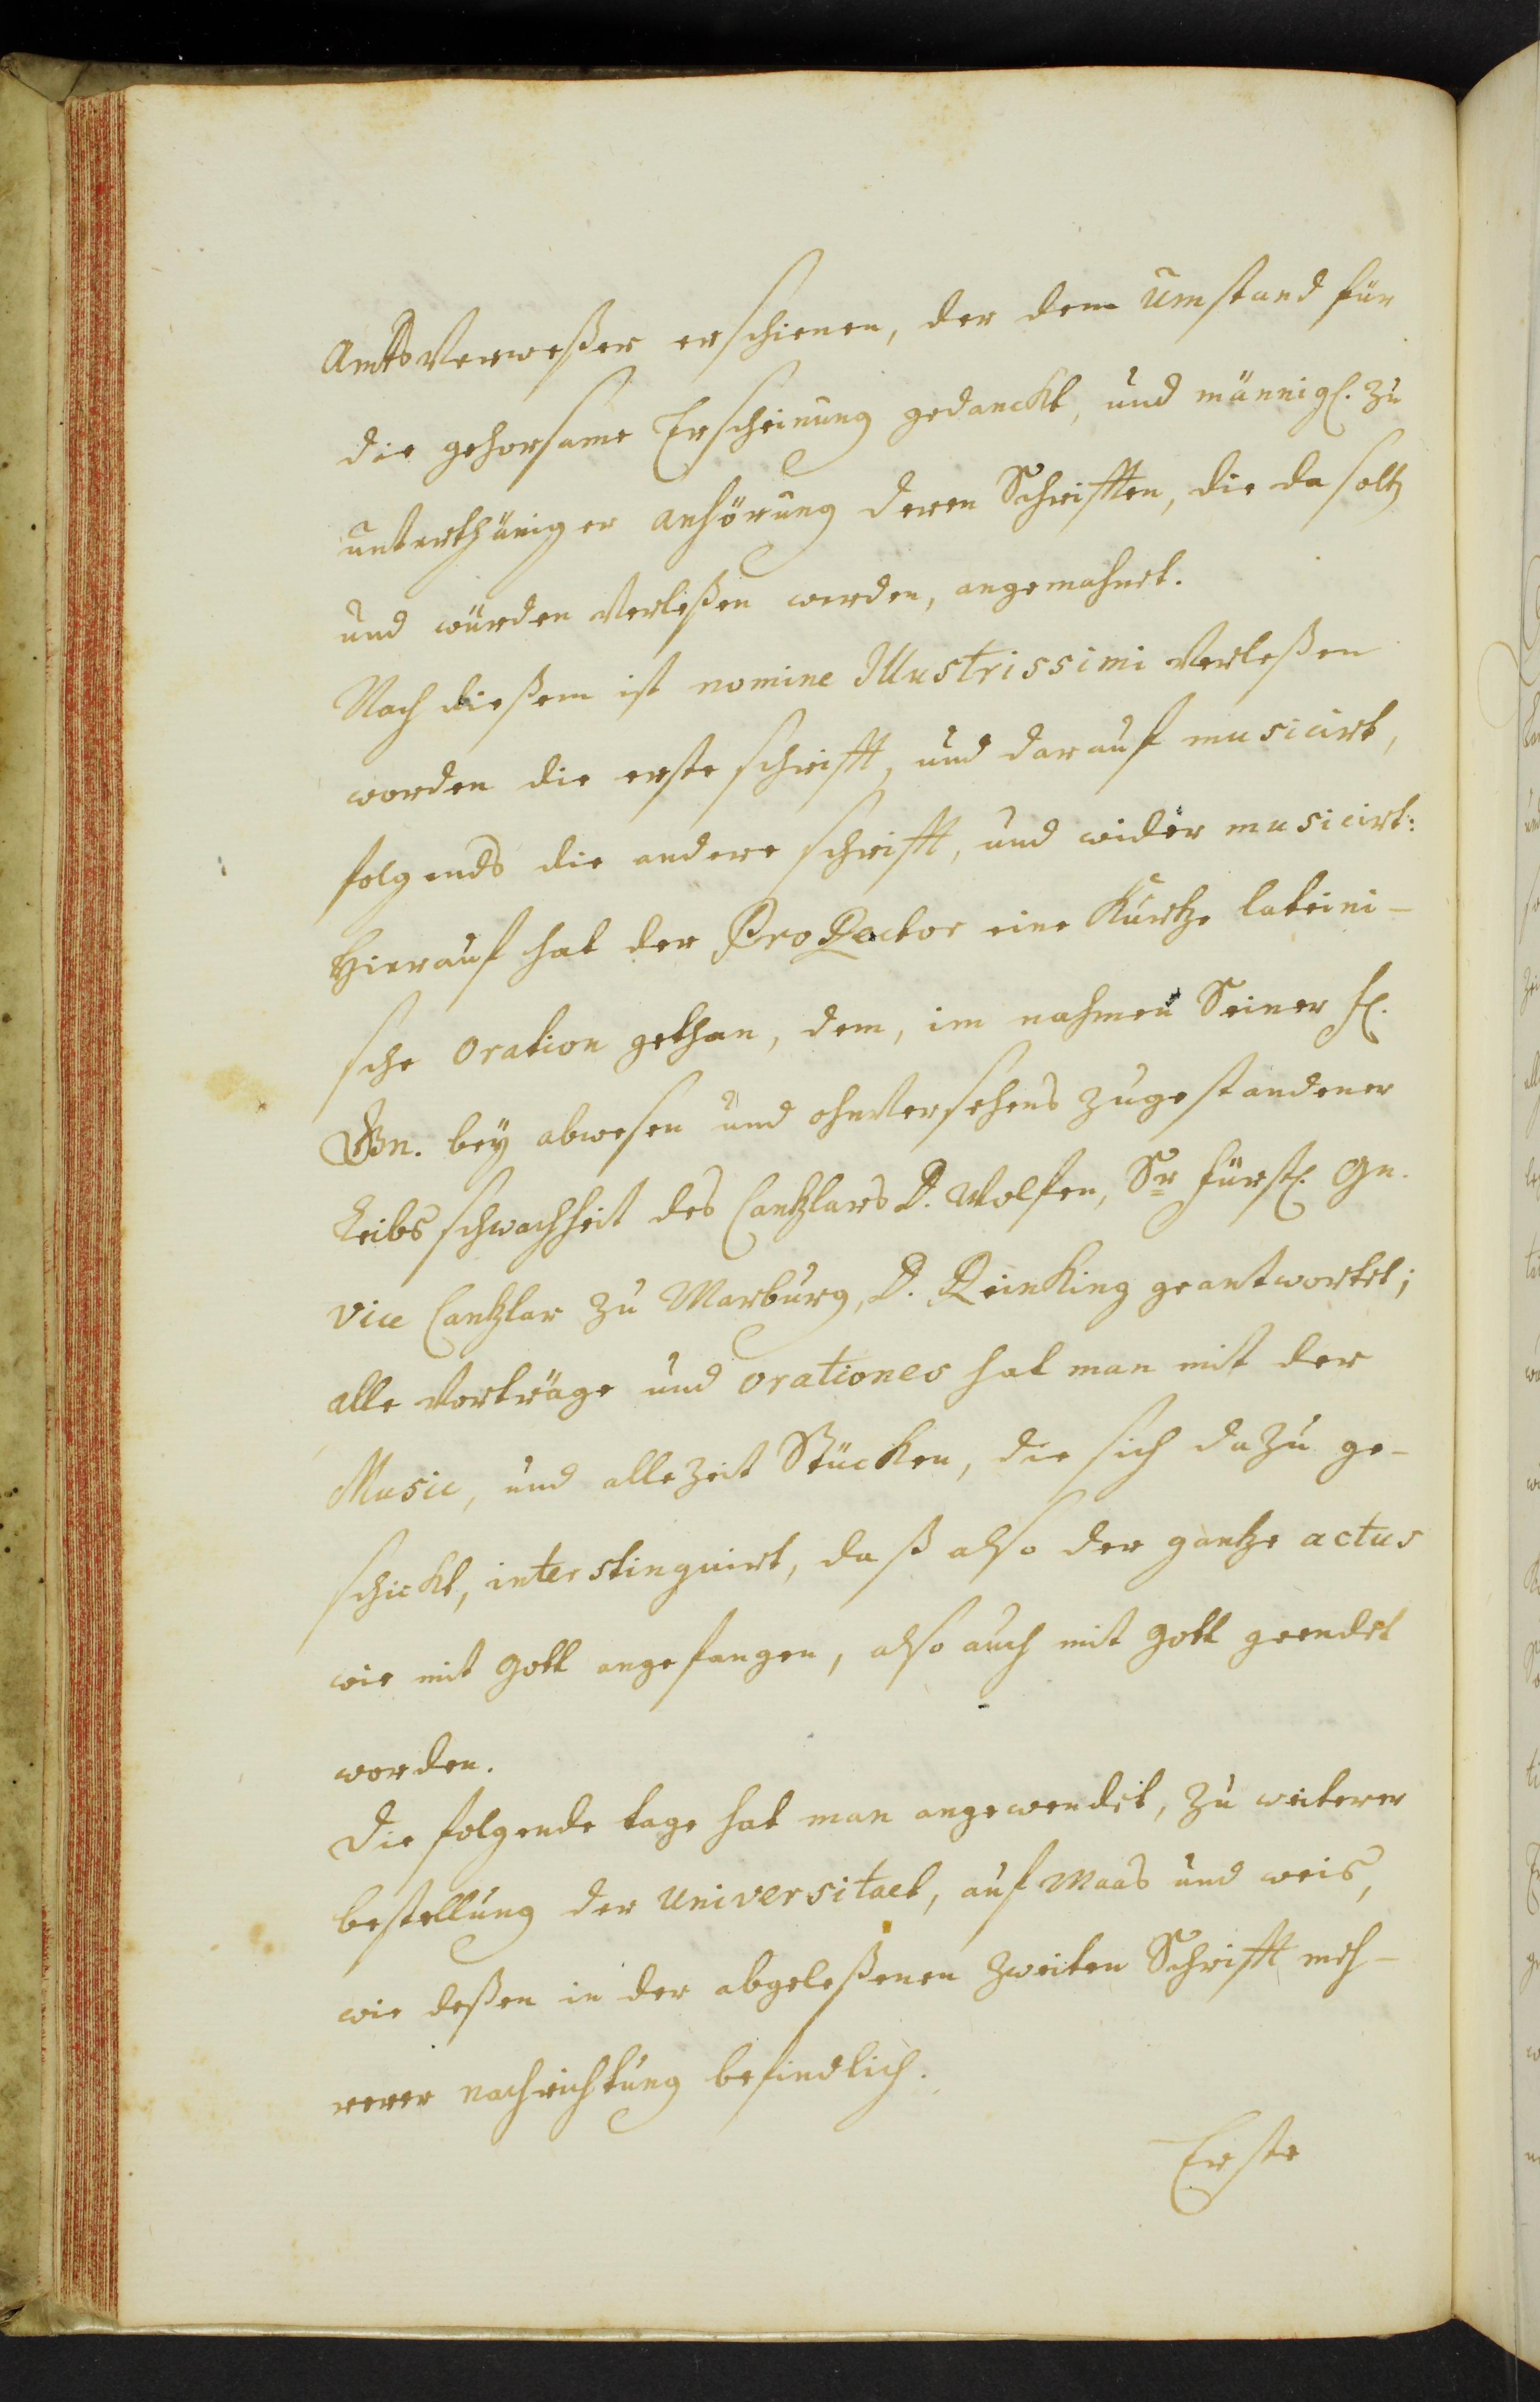 Amts Verweßer erschienen, der dem Umstand für
die gehorsame Erscheinung gedanckt, und männigl. zu
unterthäniger anhörung deren Schrifften, die da solt
und würden Verleßen werden, angemahnet.
Nach dießem ist nomine Illustrissimi Verleßen
worden die erste schrifft, und darauf musicirt,
folgends die andere schrifft, und wider musicirt:
Hierauf hat der ProRector eine Kurtze lateini-
sche Oration gethan, dem, im nahmen Seiner fl.
Gn. bey abwesen und ohnversehens zugestandener
Leibs schwachheit des Cantzlars D. Wolfen, Sr fürstl. Gn.
Vice Cantzlar zu Marburg, D. Reinking geantwortet;
alle Vorträge und orationes hat man mit der
Music, und allezeit Stücken, die sich dazu ge-
schickt, interstinguirt, daß also der gantze actus
wie mit Gott angefangen, also auch mit Gott geendet
worden.
Die folgende tage hat man angewendet, zu weiterer
bestellung der Universitaet, auf Maas und weis,
wie deßen in der abgeleßenen zweiten Schrifft meh-
rerer nachrichtung befindlich.
Erste